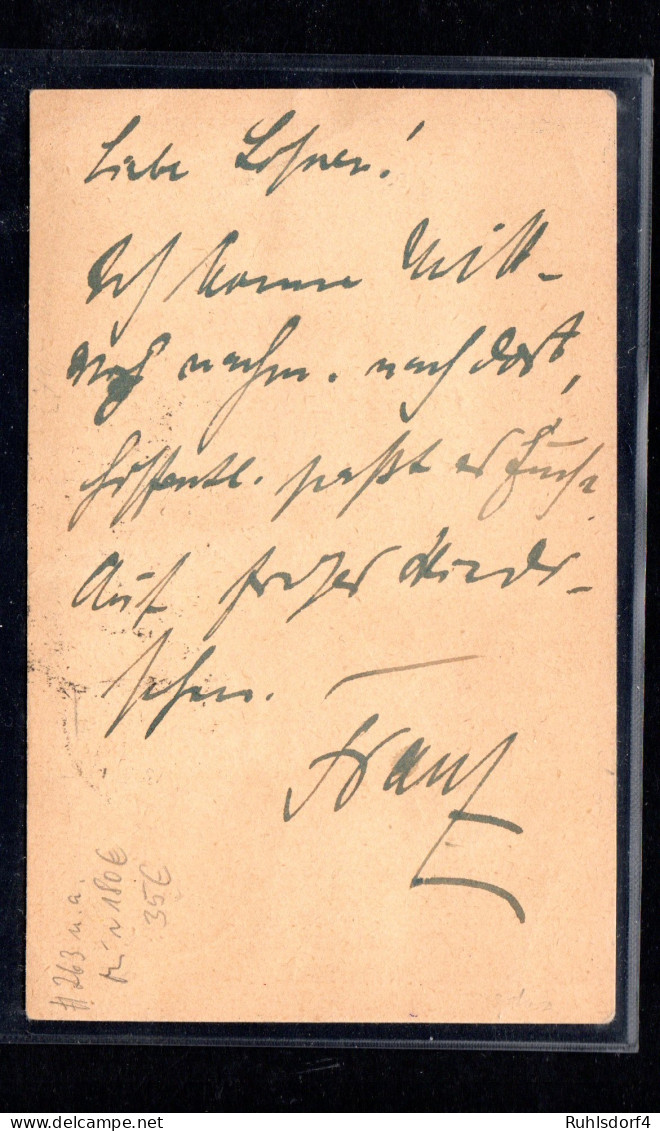 Liebe Lohner!
Ich komme Mitt-
woch nachm. nach dort,
hoffentl. paßt es Euch.
Auf frohes Wieder-
sehen.
Franz
# 263 u.a.
Mi ~ 180€
35€
Ruhlsdorf4